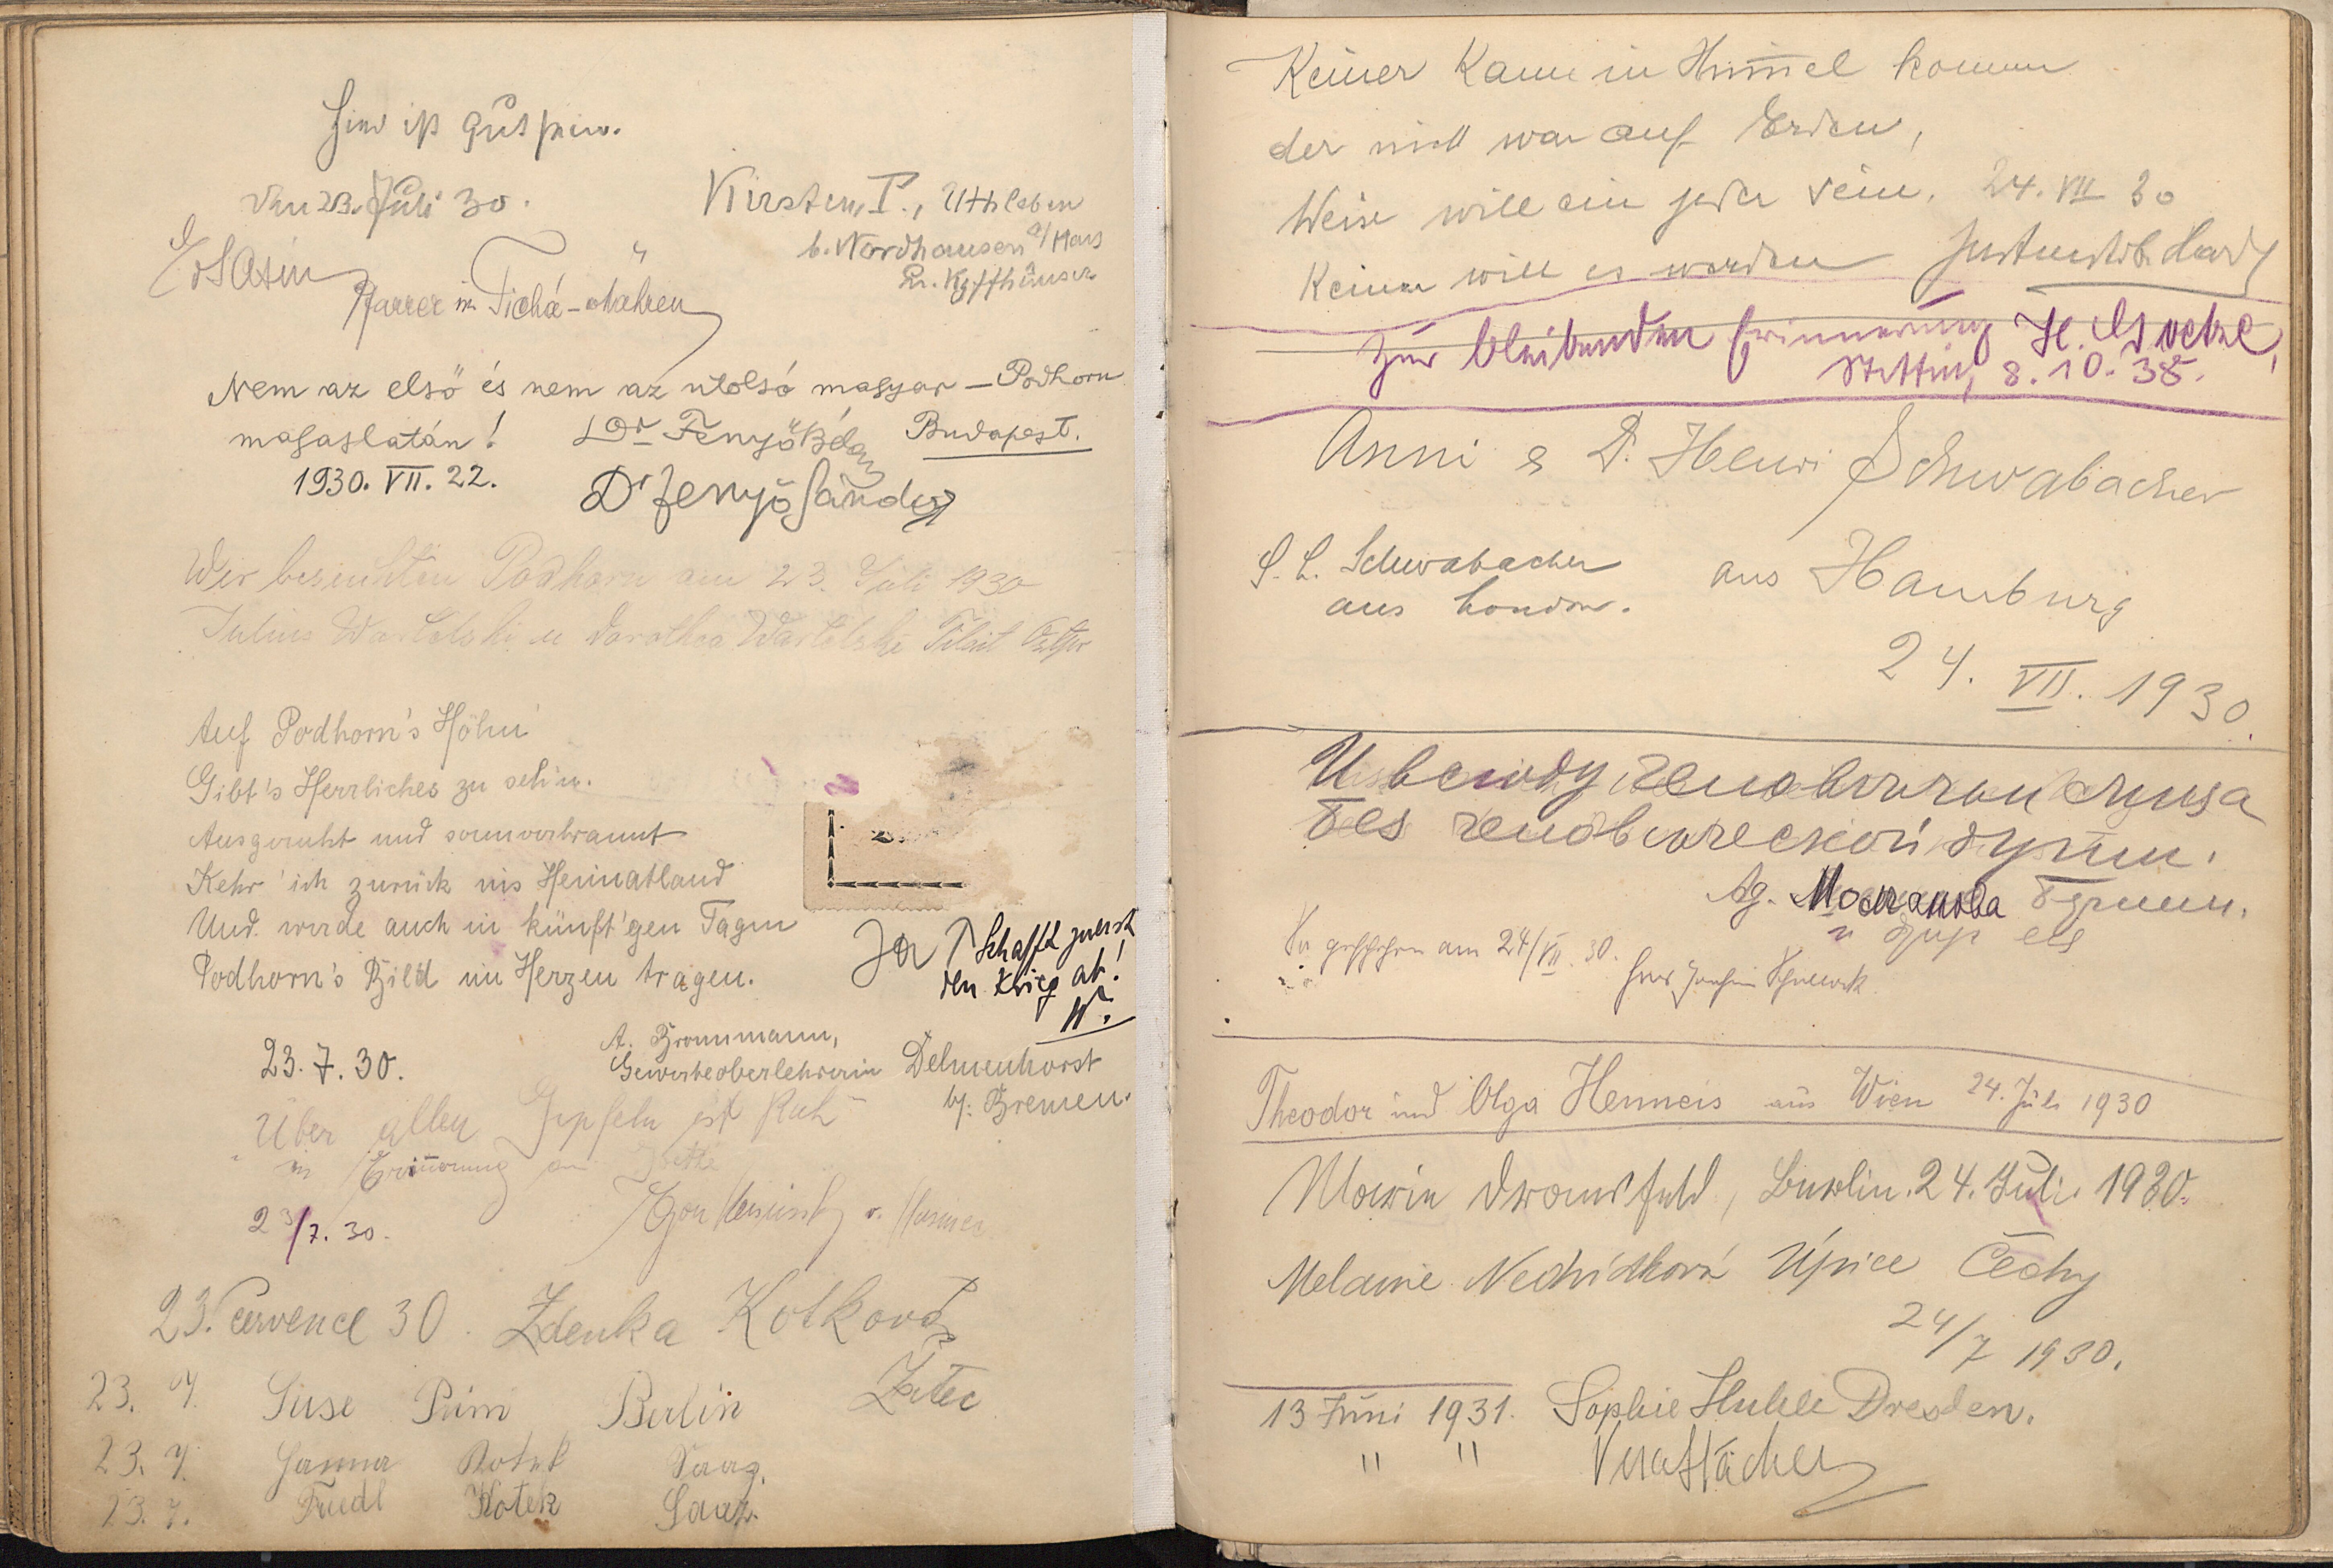 Hier ist gut sein.
den 23. Juli 30.
Pfarrer in Tichá-Mähren
Kirsten, I., Uthleben
b. Nordhausen a/Harz
Kr. Kyffhäuser
Nem az első és nem az utolsó magyar – Podhorn
magaslatán! Dr Fenyő Béla Budapest.
1930. VII. 22. Dr Fenyő Sándor
Wir besuchten Podhorn am 23. Juli 1930
Julius Wartelski u Dorothea Wartelski Tilsit Ostpr
Auf Podhorn's Höhn
Gibt's Herrliches zu sehn.
Ausgeruht und sonnverbrannt
Kehr' ich zurück ins Heimatland
Und werde auch in künft'gen Tagen
Podhorn's Bild im Herzen tragen.
Ja ↑ Schafft zuerst
den Krieg ab!
W.
23. 7. 30.
A. Brommmann,
Gewerbeoberlehrerin Delmenhorst
bj. Bremen.
Über allen Gipfeln ist Ruh
in Erinnerung an
23/7. 30.
23. Července 30. Zdenka Kotková
Žatec
23. 7. Suse Prim Berlin
23. 7. Hanna Kotek Saaz.
23. 7. Friedl Kotek Saaz.
Keiner kann in Himmel komm
der nicht war auf Erden,
Weise will ein jeder sein, 24. VII 30
Keiner will es werden
Zur bleibenden Erinnerung H.
Stettin, 8. 10. 35.
Anni & D. Henri Schwabacher
S. L. Schwabacher
aus London.
aus Hamburg
24. VII. 1930.
без человеческой души.
am 24/VII. 30.
Theodor und Olga Henneis aus Wien 24. Juli 1930
Marie Dramsfeld, Berlin. 24. Juli 1930.
Melanie Nechvídková Úpice Čechy
24/7 1930.
13 Juni 1931. Sophie Huhle Dresden.
" "